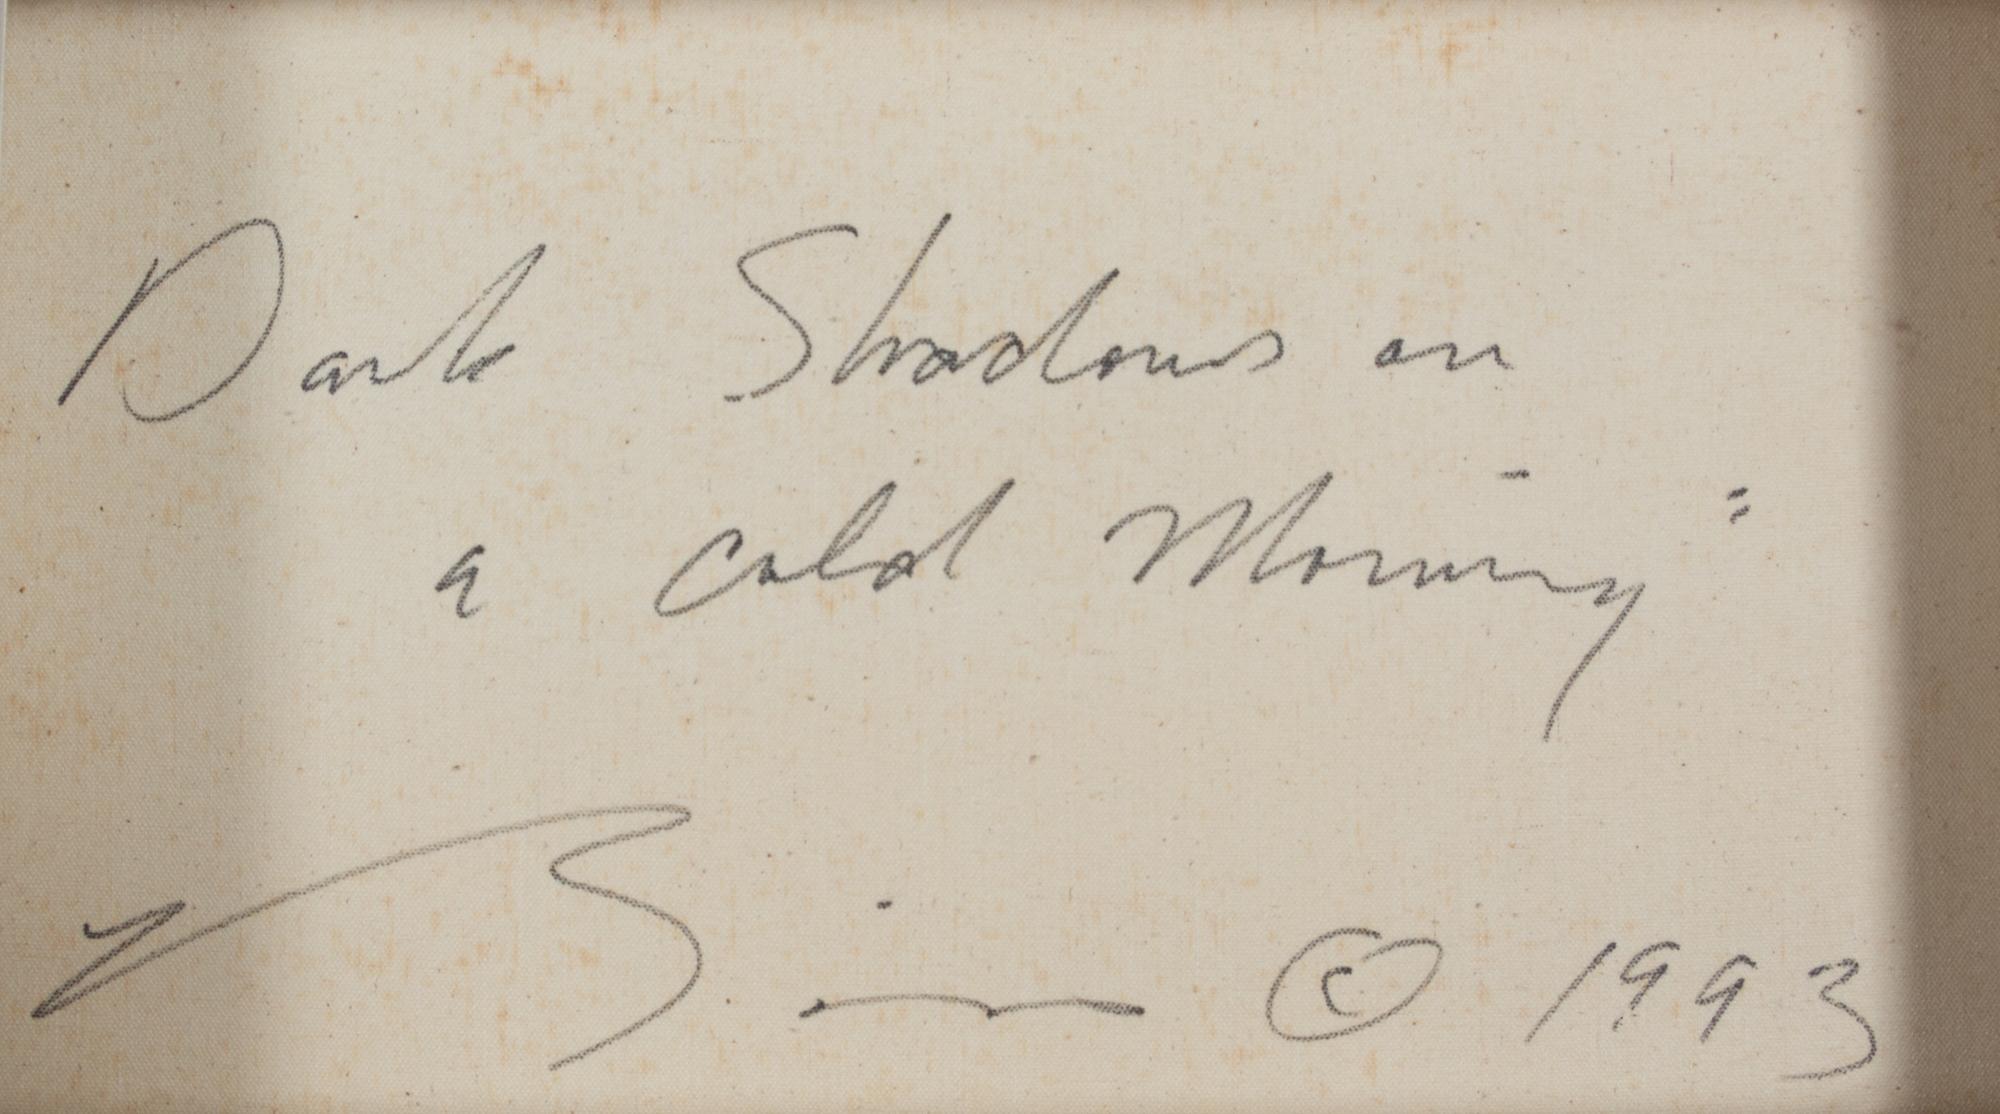 Dark Shadows on
a cold Morning"
© 1993